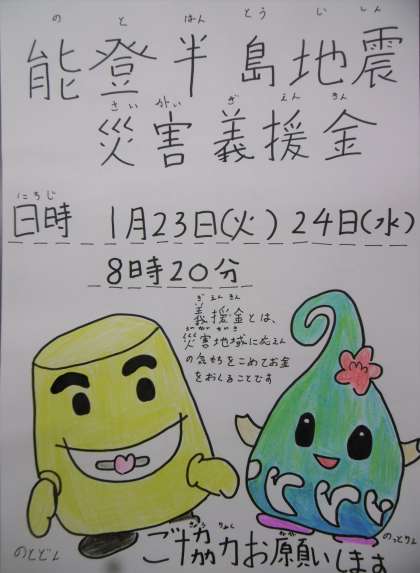 のとはんとうじしん
能登半島地震
さいがいぎえんきん
災害義援金
にちじ
日時 1月23日(火) 24日(水)
8時20分
ぎえんきん
義援金とは、
災害地域に応えん
の気もちをこめてお金
をおくることです
きょうりょく ねが
ご協力お願いします
のとどん
のっとりん